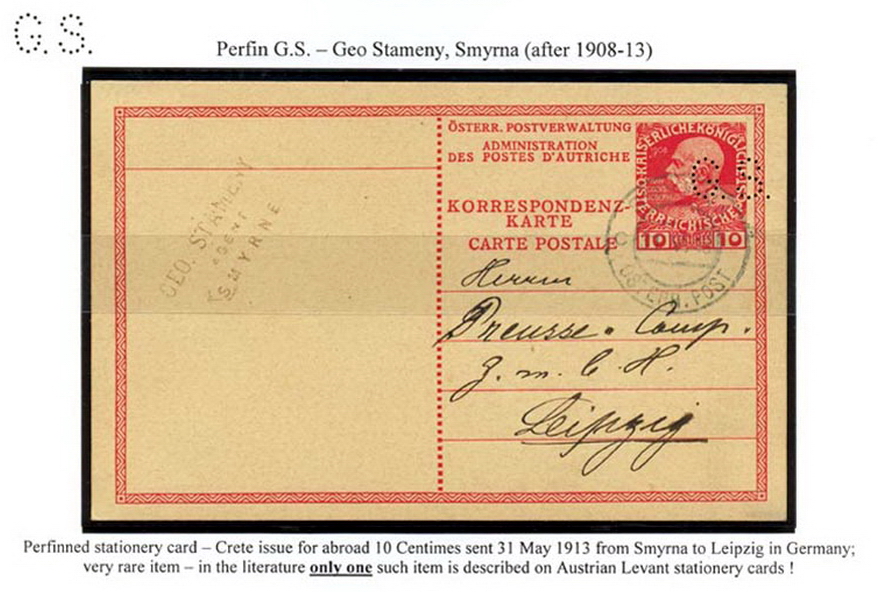 G.S.
Perfin G.S. – Geo Stameny, Smyrna (after 1908-13)
ÖSTERR. POSTVERWALTUNG
ADMINISTRATION
DES POSTES D'AUTRICHE
KORRESPONDENZ-
KARTE
CARTE POSTALE
G.S.
1908
10 CENTIMES 10
GEO. STAMENY
AGENT
SMYRNE
Herrn
Preusse & Comp.
G. m. b. H.
Leipzig
Perfinned stationery card – Crete issue for abroad 10 Centimes sent 31 May 1913 from Smyrna to Leipzig in Germany;
very rare item – in the literature only one such item is described on Austrian Levant stationery cards !